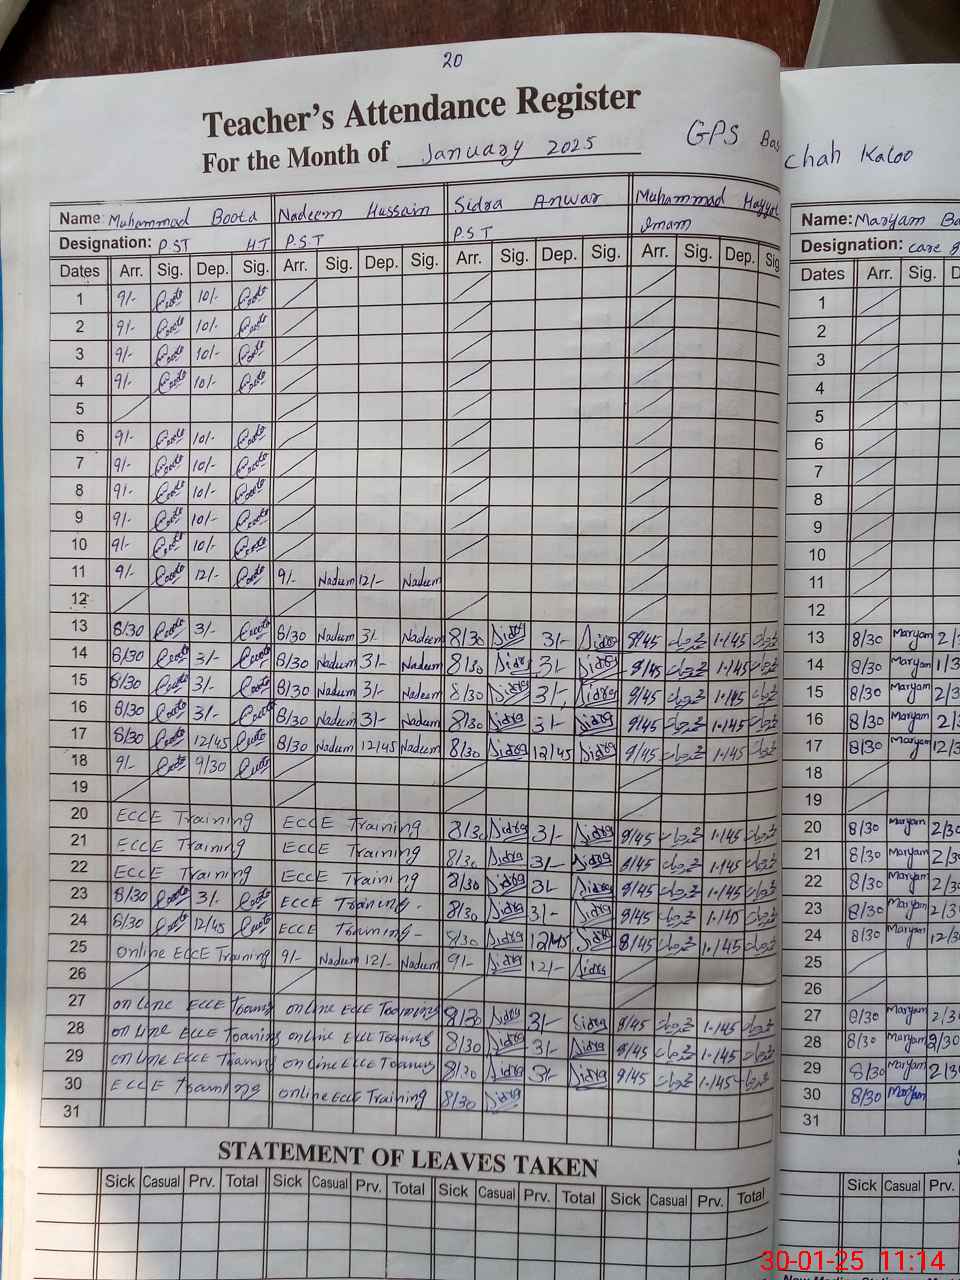 20
Teacher's Attendance Register
For the Month of January 2025 GPS Bas
chah Kaloo
Name: Muhammad Boota Nadeem Hussain Sidra Anwar Muhammad Hayyat
Designation: P.ST H.T P.S.T P.S.T Imam
Dates Arr. Sig. Dep. Sig. Arr. Sig. Dep. Sig. Arr. Sig. Dep. Sig. Arr. Sig. Dep. Sig
1 9/- Boota 10/- Boota
2 9/- Boota 10/- Boota
3 9/- Boota 10/- Boota
4 9/- Boota 10/- Boota
5
6 9/- Boota 10/- Boota
7 9/- Boota 10/- Boota
8 9/- Boota 10/- Boota
9 9/- Boota 10/- Boota
10 9/- Boota 10/- Boota
11 9/- Boota 12/- Boota 9/- Nadeem 12/- Nadeem
12
13 8/30 Boota 3/- Boota 8/30 Nadeem 3/- Nadeem 8/30 Sidra 3/- Sidra 9/45 1-145
14 8/30 Boota 3/- Boota 8/30 Nadeem 3/- Nadeem 8/30 Sidra 3/- Sidra 9/45 1-145
15 8/30 Boota 3/- Boota 8/30 Nadeem 3/- Nadeem 8/30 Sidra 3/- Sidra 9/45 1-145
16 8/30 Boota 3/- Boota 8/30 Nadeem 3/- Nadeem 8/30 Sidra 3/- Sidra 9/45 1-145
17 8/30 Boota 12/45 Boota 8/30 Nadeem 12/45 Nadeem 8/30 Sidra 12/45 Sidra 9/45 1-145
18 9/- Boota 9/30 Boota
19
20 ECCE Training ECCE Training 8/30 Sidra 3/- Sidra 9/45 1-145
21 ECCE Training ECCE Training 8/30 Sidra 3/- Sidra 8/45 1-145
22 ECCE Training ECCE Training 8/30 Sidra 3/- Sidra 9/45 1-145
23 8/30 Boota 3/- Boota ECCE Training - 8/30 Sidra 3/- Sidra 9/45 1-145
24 8/30 Boota 12/45 Boota ECCE Training - 8/30 Sidra 12/45 Sidra 8/45 1-145
25 Online ECCE Training 9/- Nadeem 12/- Nadeem 9/- Sidra 12/- Sidra
26
27 online ECCE Training online ECCE Training 8/30 Sidra 3/- Sidra 9/45 1-145
28 online ECCE Training online ECCE Training 8/30 Sidra 3/- Sidra 9/45 1-145
29 online ECCE Training online ECCE Training 8/30 Sidra 3/- Sidra 9/45 1-145
30 ECCE Training online ECCE Training 8/30 Sidra
31
STATEMENT OF LEAVES TAKEN
Sick Casual Prv. Total Sick Casual Prv. Total Sick Casual Prv. Total Sick Casual Prv. Total
Name: Maryam Ba
Designation: care g
Dates Arr. Sig. D
1
2
3
4
5
6
7
8
9
10
11
12
13 8/30 Maryam 2/3
14 8/30 Maryam 1/3
15 8/30 Maryam 2/3
16 8/30 Maryam 2/
17 8/30 Maryam 12/3
18
19
20 8/30 Maryam 2/30
21 8/30 Maryam 2/30
22 8/30 Maryam 2/30
23 8/30 Maryam 2/30
24 8/30 Maryam 12/30
25
26
27 8/30 Maryam 2/30
28 8/30 Maryam 2/30
29 8/30 Maryam 2/30
30 8/30 Maryam
31
Sick Casual Prv.
30-01-25 11:14